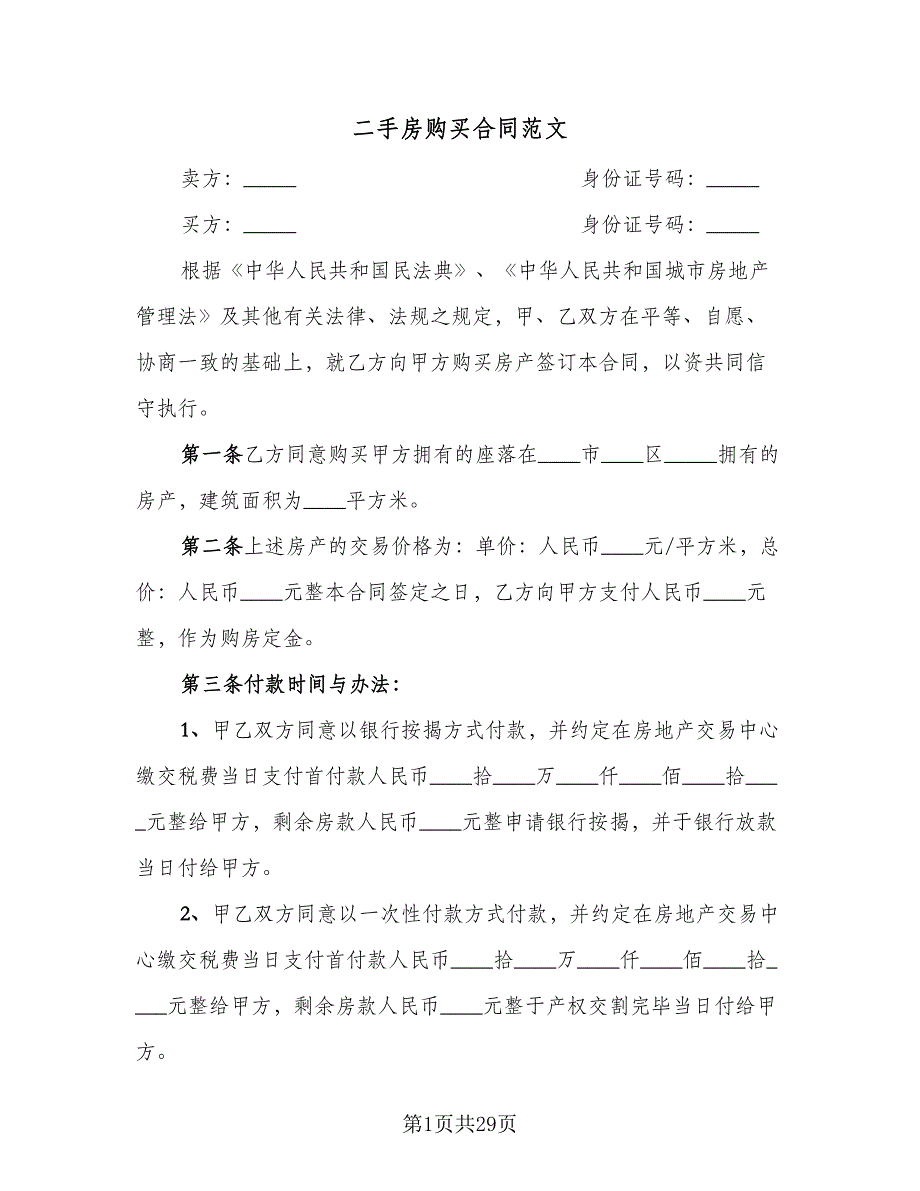 二手房购买合同范文
卖方：_____ 身份证号码：_____
买方：_____ 身份证号码：_____
根据《中华人民共和国民法典》、《中华人民共和国城市房地产
管理法》及其他有关法律、法规之规定，甲、乙双方在平等、自愿、
协商一致的基础上，就乙方向甲方购买房产签订本合同，以资共同信
守执行。
第一条乙方同意购买甲方拥有的座落在____市____区_____拥有的
房产，建筑面积为____平方米。
第二条上述房产的交易价格为：单价：人民币____元/平方米，总
价：人民币____元整本合同签定之日，乙方向甲方支付人民币____元
整，作为购房定金。
第三条付款时间与办法：
1、甲乙双方同意以银行按揭方式付款，并约定在房地产交易中心
缴交税费当日支付首付款人民币____拾____万____仟____佰____拾___
_元整给甲方，剩余房款人民币____元整申请银行按揭，并于银行放款
当日付给甲方。
2、甲乙双方同意以一次性付款方式付款，并约定在房地产交易中
心缴交税费当日支付首付款人民币____拾____万____仟____佰____拾_
___元整给甲方，剩余房款人民币____元整于产权交割完毕当日付给甲
方。
第1页共29页